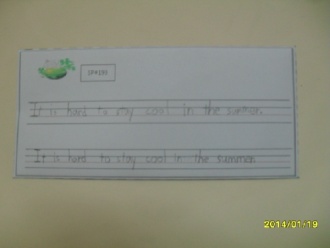 It is hard to my cool in the summer.
It is hard to stay cool in the summer.
2014/01/19